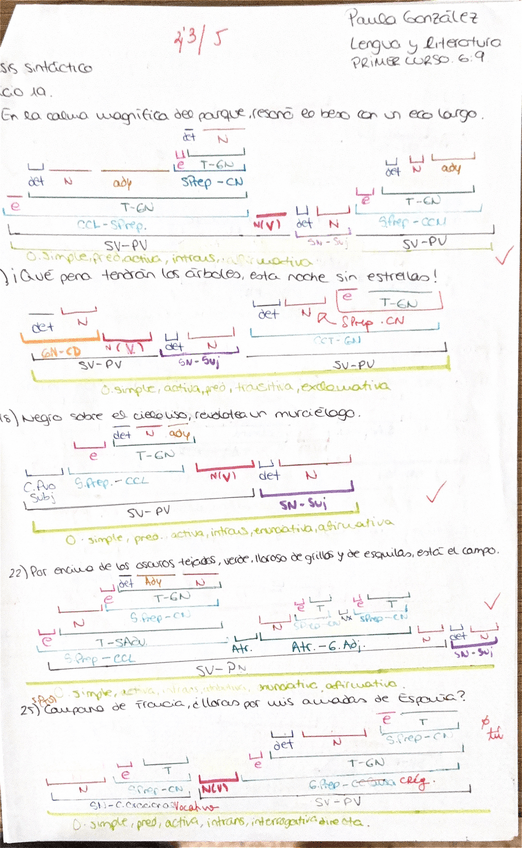 2'3/5
Paula González
Lengua y literatura
PRIMER CURSO. 6:9
sis sintáctico
CO 19.
En la calma magnífica del parque, resonó el beso con un eco largo.
det N
e T-GN
det N adj SPrep-CN det N adj
e T-GN e T-GN
CCL-SPrep. N(V) det N SPrep-CCN
SV-PV SN-Suj SV-PV
O. simple, pred, activa, intrans, afirmativa
) ¡Qué pena tendrán los árboles, esta noche sin estrellas!
e T-GN
det N det N SPrep-CN
GN-CD N(V) det N CCT-GN
SV-PV SN-Suj SV-PV
O. simple, activa, pred, transitiva, exclamativa
18) Negro sobre el cielo liso, revolotea un murciélago.
det N adj
e T-GN
C.Pvo Subj S.Prep.-CCL N(V) det N
SV-PV SN-Suj
O. simple, pred. activa, intrans, enunciativa, afirmativa
22) Por encima de los oscuros tejados, verde. lloroso de grillos y de esquilas, está el campo.
det Adj N
e T-GN e T e T
N S.Prep-CN N SPrep-CN nx SPrep-CN
e T-SAdv Atr. Atr.-G.Adj. N det N
S.Prep-CCL SN-Suj
SV-PN
O. simple, enunciativa, afirmativa.
25) Campana de Francia, ¿lloras por mis amadas de España?
e T
det N S.Prep-CN
ø tú
e T e T-GN
N S.Prep-CN N(V) G.Prep-CCausa CRég.
SN-C. Vocativo SV-PV
O. simple, pred, activa, intrans, interrogativa directa.